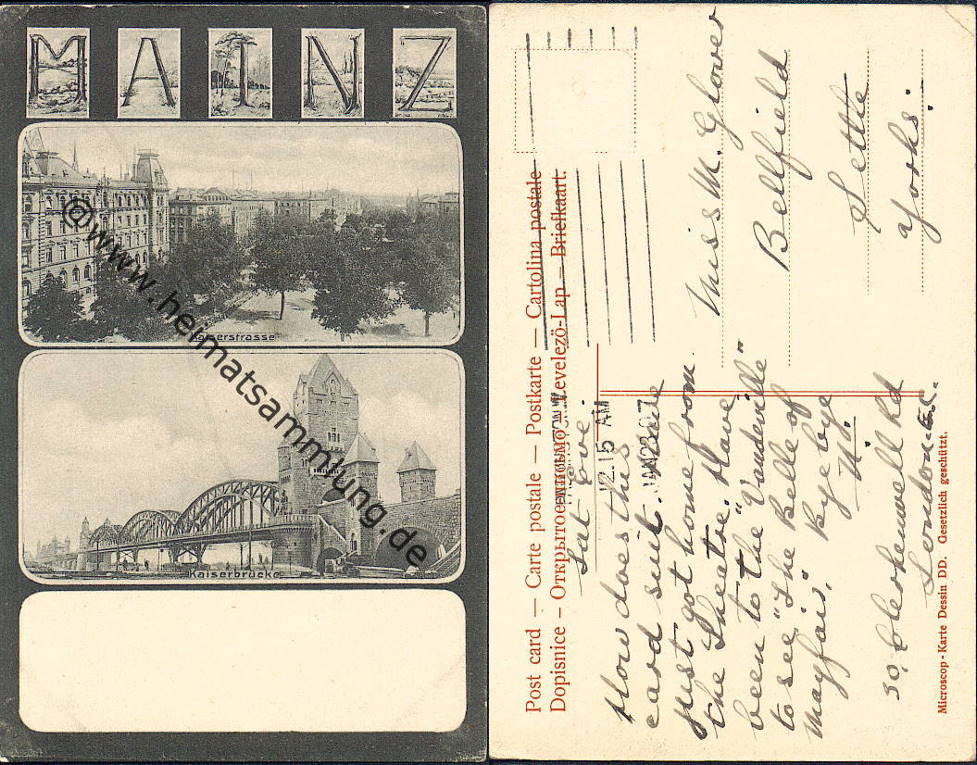 MAINZ
Kaiserstrasse
Kaiserbrücke
@www.heimatsammlung.de
Post card — Carte postale — Postkarte — Cartolina postale
Dopisnice – Открытое письмо – Levelezö-Lap – Briefkaart:
12.15 AM
JAN 28 07
Sat Eve.
How does this
card suit. Bille
just got home from
the Theatre. Have
been to the "Vaudeville"
to see "The Belle of
Mayfair," Bye bye
50, Clerkenwell Rd
London. E.C.
Miss M. Glover
Bellfield
Settle
Yorks.
Microscop-Karte Dessin DD. Gesetzlich geschützt.